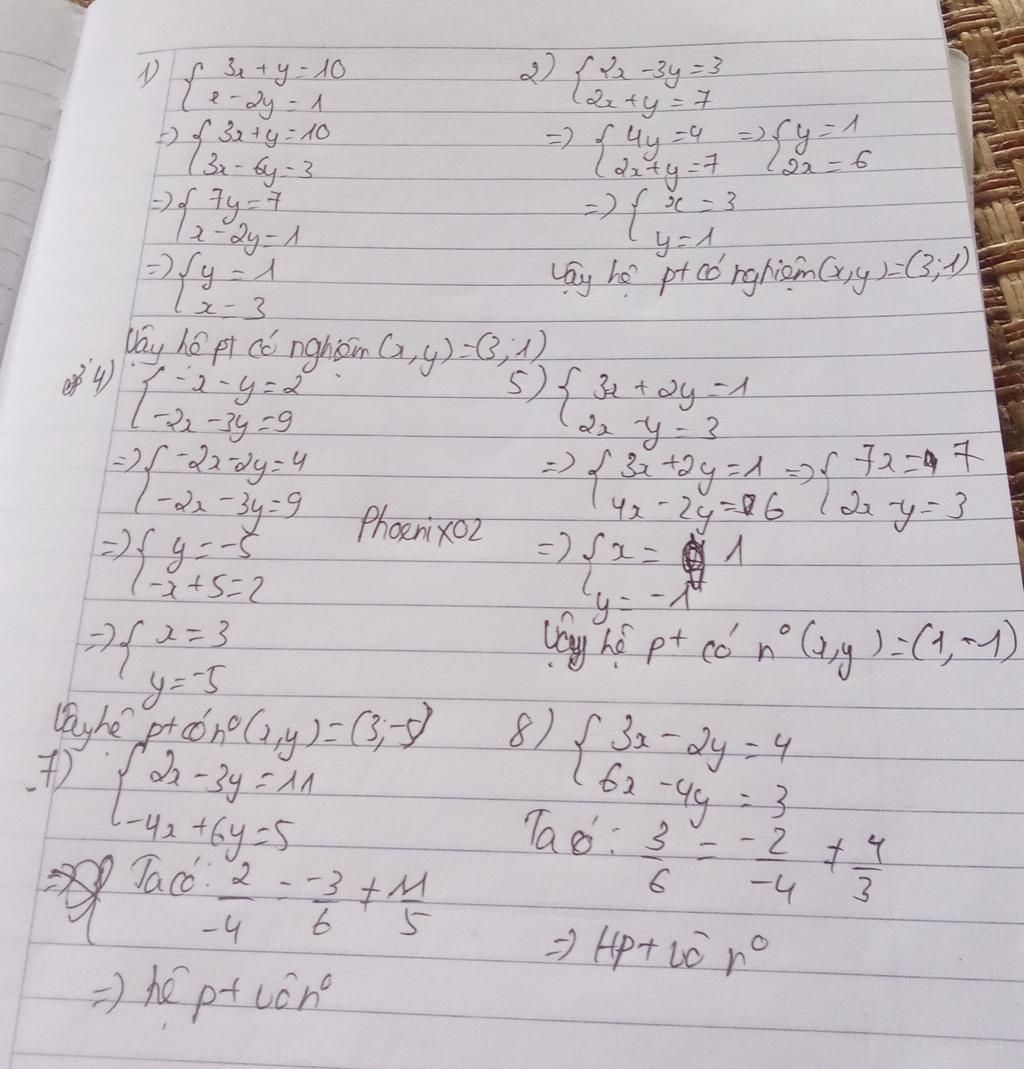 1) { 3x + y = 10
x - 2y = 1
=> { 3x + y = 10
3x - 6y = 3
=> { 7y = 7
x - 2y = 1
=> { y = 1
x = 3
Vậy hệ pt có nghiệm (x,y) = (3;1)
2) { 2x - 3y = 3
2x + y = 7
=> { 4y = 4 => { y = 1
2x + y = 7 2x = 6
=> { x = 3
y = 1
Vậy hệ pt có nghiệm (x,y) = (3;1)
4) { -x - y = 2
-2x - 3y = 9
=> { -2x - 2y = 4
-2x - 3y = 9
=> { y = -5
-x + 5 = 2
=> { x = 3
y = -5
Vậy hệ pt có n⁰ (x,y) = (3;-5)
5) { 3x + 2y = 1
2x - y = 3
=> { 3x + 2y = 1 => { 7x = 7
4x - 2y = 6 2x - y = 3
=> { x = 1
y = -1
Vậy hệ pt có n⁰ (x,y) = (1,-1)
Phoenix02
7) { 2x - 3y = 11
-4x + 6y = 5
Ta có: 2/-4 = -3/6 ≠ 11/5
=> hệ pt vô n⁰
8) { 3x - 2y = 4
6x - 4y = 3
Ta có: 3/6 = -2/-4 ≠ 4/3
=> HPt vô n⁰